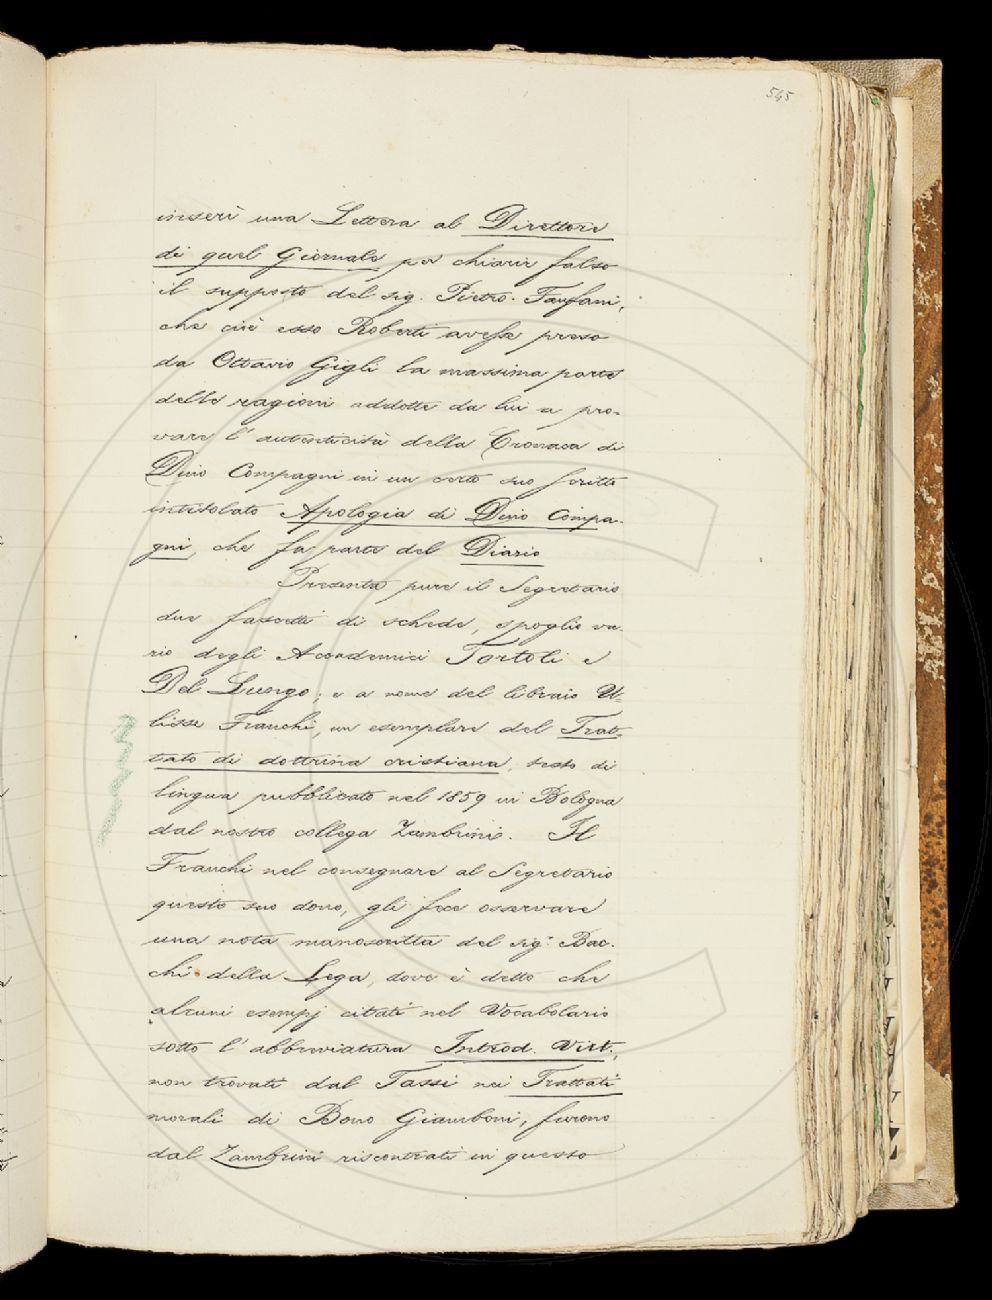 545
inserì una Lettera al Direttore
di quel Giornale per chiarir falso
il supposto del sig. Pietro Fanfani,
che cioè esso Roberti avesse preso
da Ottavio Gigli la massima parte
delle ragioni addotte da lui a pro-
vare l'autenticità della Cronaca di
Dino Compagni in un certo suo scritto
intitolato Apologia di Dino Compa-
gni, che fa parte del Diario
Presenta pure il Segretario
due fascetti di schede, spoglio va-
rio degli Accademici Tortoli e
Del Lungo; e a nome del libraio U-
lisse Franchi, un esemplare del Trat-
tato di dottrina cristiana, testo di
lingua pubblicato nel 1859 in Bologna
dal nostro collega Zambrini. Il
Franchi nel consegnare al Segretario
questo suo dono, gli fece osservare
una nota manoscritta del sig. Bac-
chi della Lega, dove è detto che
alcuni esempj citati nel Vocabolario
sotto l'abbreviatura Introd. Virt.,
non trovati dal Tassi nei Trattati
morali di Bono Giamboni, furono
dal Zambrini riscontrati in questo